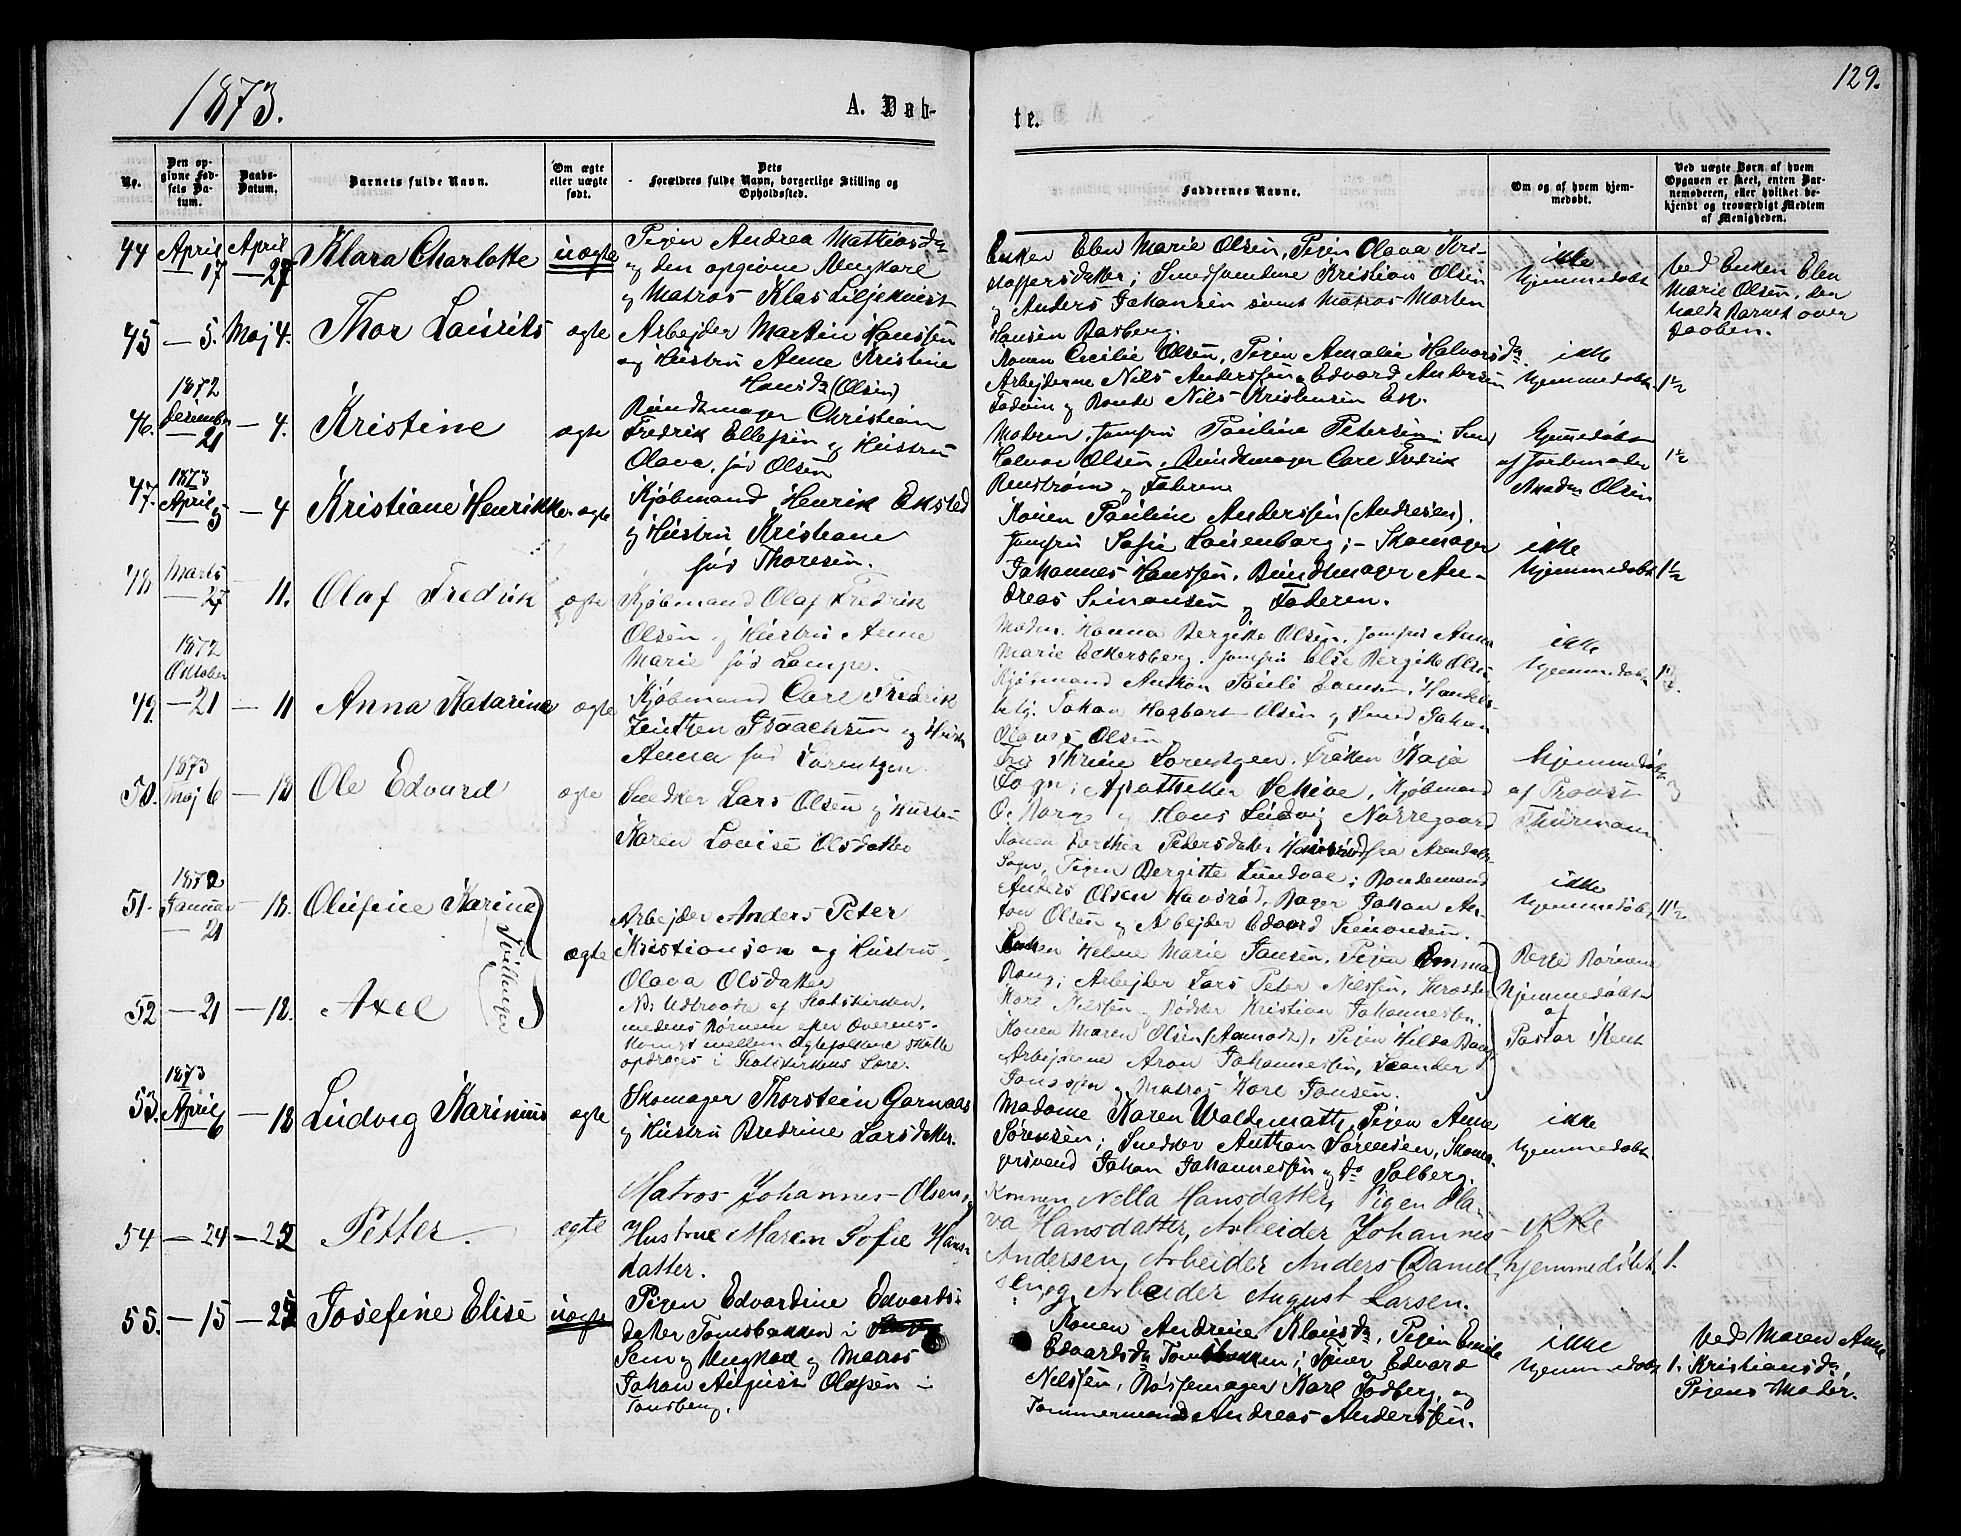 1873.
A. Døb-
te.
129.
No.
Den op-
givne Fød-
sels Da-
tum.
Daabs-
Datum.
Barnets fulde Navn.
Om ægte
eller uægte
født.
Dets
Forældres fulde Navn, borgerlige Stilling og
Opholdssted.
Faddernes Navne.
Om og af hvem hjem-
medøbt.
Ved uægte Børn af hvem
Opgaven er skeet, enten Bar-
nemoderen, eller hvilket be-
kjendt og troværdigt Medlem
af Menigheden.
44 April 17 April 27 Klara Charlotte uægte
Pigen Andrea Mathiasda
og den opgivne Ungkarl
og Matros Klas Liljekvist
Enken Elen Marie Olsen, Pigen Olava Kri-
stoffersdatter; Svendene Kristian Olsen
og Anders Johansen samt Matros Morten
Hansen Basberg.
ikke
hjemmedøbt
Ved Enken Elen
Marie Olsen, den
holdt Barnet over
Daaben.
45 — 5. Maj 4. Thor Laurits ægte
Arbejder Martin Hanssen
og Hustru Anne Kristine
Hansda (Olsen)
Konen Cecilie Olsen, Pigen Amalie Halvorsda
Arbejderne Nils Anderssen, Edvard Andersen
Faderen og Bonde Nils Kristensen Ek.
ikke
hjemmedøbt 1½
46. 1872 December 21 — 4. Kristine ægte
Bundtmager Christian
Fredrik Ellefsen og Hustru
Olava, fød Olsen
Moderen, Jomfru Pauline Petersen;
Halvor Olsen, Bundtmager Carl Fredrik
Renstrøm og Faderen
hjemmedøbt
af Jordemoder
Madm Olsen
1½
47. 1873 April 5 — 4 Kristiane Henrikke ægte
Kjøbmand Henrik Eksted
og Hustru Kristiane
fød Thoresen.
Konen Pauline Anderssen (Andresen).
Jomfru Sofie Lauenborg; — Skomager
Johannes Hanssen, Bundtmager An-
dreas Simonsen og Faderen.
ikke
hjemmedøbt 1½
48 Marts 27 11. Olaf Fredrik ægte
Kjøbmand Olaf Fredrik
Olsen og Hustru Anne
Marie fød Lampe.
Madm. Hanna Bergitte Olsen, Jomfru Anna
Marie Eckersberg, Jomfru Else Bergitte Olsen
Kjøbmand Anthon Pauli, Handels-
betj. Johan Hagbart Olsen og Johan
Olaus Olsen
ikke
hjemmedøbt
49 1872 Oktober — 21 — 11 Anna Katarina ægte
Kjøbmand Carl Fredrik
Isaachsen og Hustru
Anna fød Lorentzen.
Fru Thrine Lorentzen, Frøken Kaja
Apotheker Schive, Kjøbmand
O. Borge og Hans Ludvig Nørregaard
hjemmedøbt
af Provst
Thurmann 3
50. 1873 Maj 6 — 18 Ole Edvard ægte
Snedker Lars Olsen og Hustru
Karen Lovise Olsdatter
Konen Dorthea Pedersdatter fra Arendals
Sogn, Pigen Bergitte Lundvall; Bondemand
Anders Olsen Havsrød, Bager Johan An-
ton Olsen og Arbejder Edvard Simonsen.
ikke
hjemmedøbt 11½
51. Januar — 21 — 18. Olufine Karine
52 — 21 — 18. Axel
Tvillinger
ægte
Arbejder Anders Peter
Kristianson og Hustru
Olava Olsdatter
NB: Udtraadt af Statskirken,
medens Børnene efter Overens-
komst mellem Ægtefolkene skulle
opdrages i Statskirkens Lære.
Enken Helene Marie Jansen, Pigen Emma
Bang; Arbejder Lars Peter Nilssen, Skrædder
Karl Nilssen, Bødker Kristian Johannessen.
Konen Maren Olsen, Pigen Hilda Bang
Arbejderne Aron Johannessen,
Jonassen og Matros Karl Jansen.
Begge Børnene
hjemmedøbte
af
Pastor Kent
53. 1873 April 6 — 18 Ludvig Karinius ægte
Skomager Thorstein Garnaas
og Hustru Bredrine Larsdatter.
Madame Karen Waldemath, Pigen Anne
Sørensen; Snedker Anthon Sørensen, Skoma-
gersvend Johan Johannessen og do Solberg.
ikke
hjemmedøbt
54 — 24 — 25 Petter. ægte
Matros Johannes Olsen, og
Hustrue Maren Sofie Hans-
datter.
Konnen Nella Hansdatter, Pigen Ola-
va Hansdatter, Arbeider Johannes
Andersen, Arbeider Anders Daniel-
sen, og Arbeider August Larsen.
ikke
hjemmedøbt. 1.
55. — 15 — 25 Josefine Elise uægte
Pigen Edvardine Edvards-
datter Tomsbakken i
Sem og Ungkarl og Matros
Johan August Olafsen i
Tønsberg.
Konen Andrine Klausda, Pigen Emilie
Edvardsda Tomsbakken; Edvard
Nilssen, Bøssemager Karl Fodberg, og
Tømmermand Andreas Anderssen.
ikke
hjemmedøbt 1.
Ved Maren Anne
Kristiansda,
Pigens Moder.